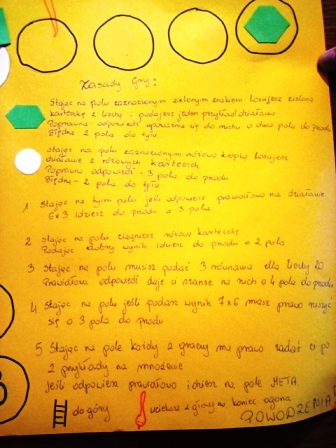 Zasady Gry:
Stając na polu zaznaczonym zielonym znakiem losujesz zieloną
karteczkę z liczbą i podajesz jeden przykład działania
Poprawna odpowiedź upoważnia się do ruchu o dwa pola do przodu
Błędna 2 pola do tyłu
Stając na polu zaznaczonym różową kropką losujesz
działanie z różowych karteczek
Poprawna odpowiedź - 3 pola do przodu
Błędna - 2 pola do tyłu
1 Stając na tym polu jeśli odpowiesz prawidłowo na działanie
6x3 idziesz do przodu o 3 pola
2 Stając na polu ciągniesz różową karteczkę
Podając dobry wynik idziesz do przodu o 2 pola
3 Stając na polu musisz podać 3 równania dla liczby 20
Prawidłowa odpowiedź daje ci szanse na ruch o 4 pola do przodu
4 Stając na polu jeśli podasz wynik 7x6 masz prawo ruszyć
się o 3 pola do przodu
5 Stając na pole każdy z graczy ma prawo zadać ci po
2 przykłady na mnożenie
Jeśli odpowiesz prawidłowo idziesz na pole META
do góry
uciekasz z głowy na koniec ogona
POWODZENIA